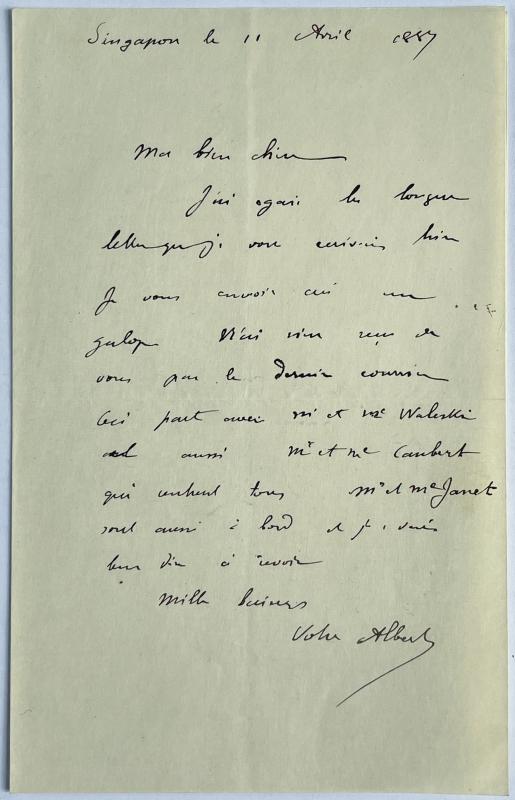 Singapour le 11 Avril 1887
Ma bien chère
J'ai égaré la longue
lettre que je vous écrivais hier
Je vous envoie ici un
galop N'ai rien reçu de
vous par le dernier courrier
Ceci part avec Mr et Me Waleski
aussi Mr et Me Caubert
qui rentrent tous Mr et Me Janet
sont aussi à bord et je vais
leur dire à revoir
Mille baisers
Votre Albert